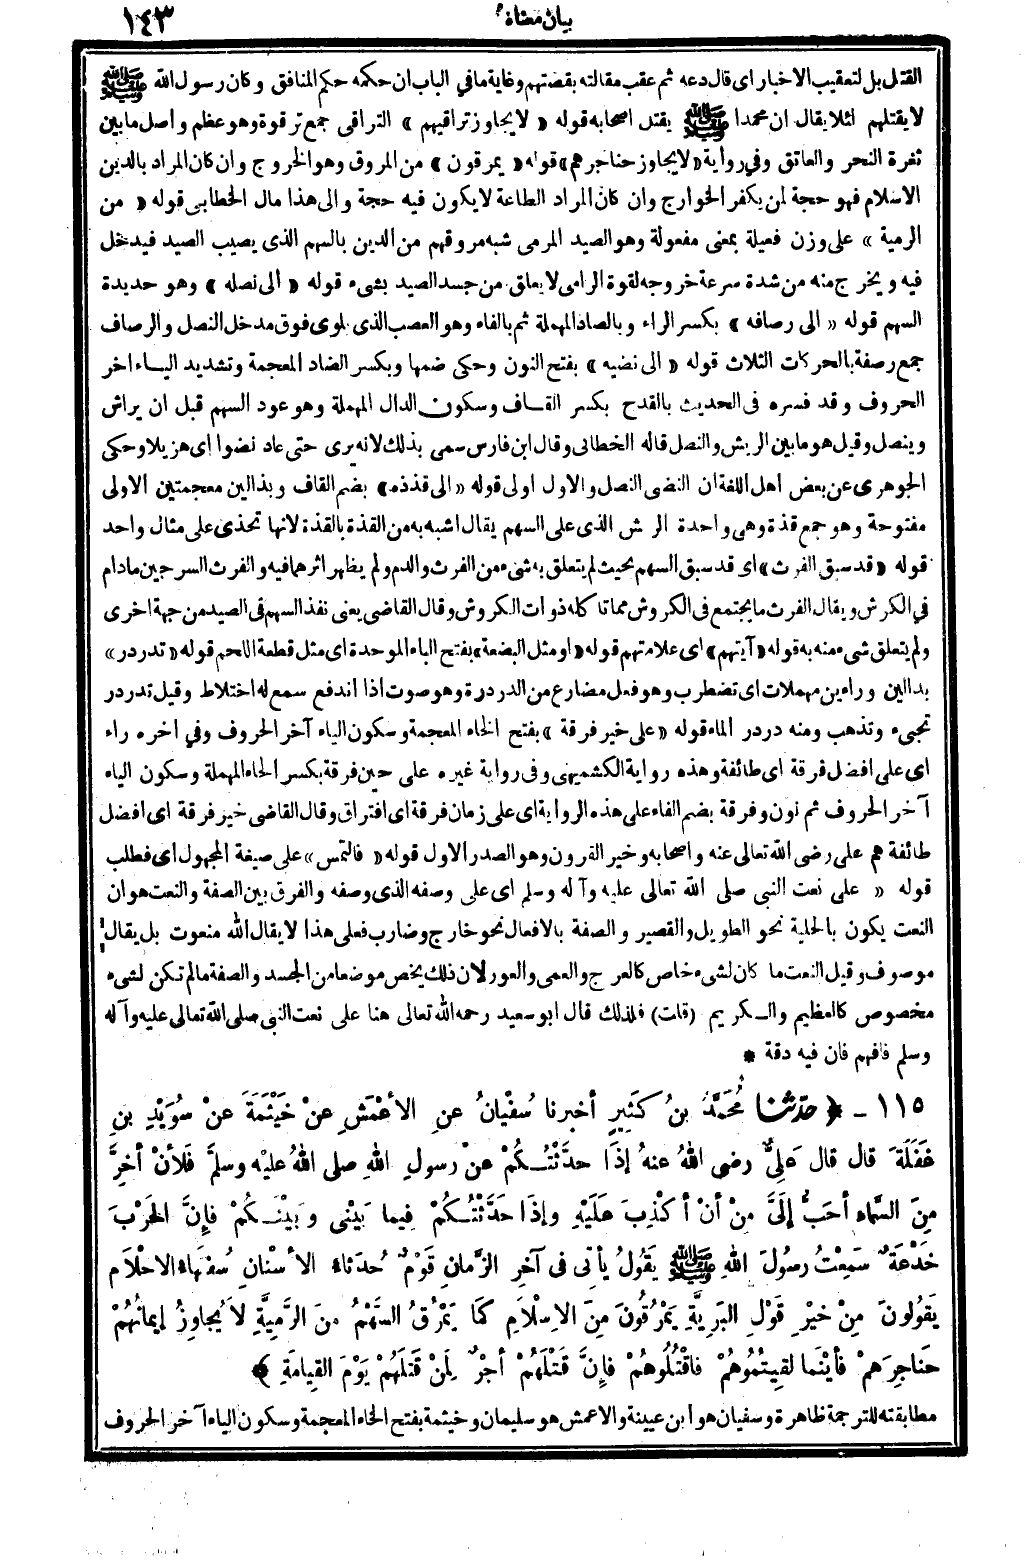 بيان معناه
١٤٣
القتل بل لتعقيب الاخبار اى قال دعه ثم عقب مقالته بقصتهم وغاية ما في الباب ان حكمه حكم المنافق وكان رسول الله ﷺ
لا يقتلهم لئلا يقال ان محمدا ﷺ يقتل اصحابه قوله « لا يجاوز تراقيهم » التراقى جمع ترقوة وهو عظم واصل ما بين
ثغرة النحر والعاتق وفي رواية « لا يجاوز حناجرهم » قوله « يمرقون » من المروق وهو الخروج وان كان المراد بالدين
الاسلام فهو حجة لمن يكفر الخوارج وان كان المراد الطاعة لا يكون فيه حجة والى هذا مال الخطابى قوله « من
الرمية » على وزن فعيلة بمعنى مفعولة وهو الصيد المرمى شبه مروقهم من الدين بالسهم الذى يصيب الصيد فيدخل
فيه ويخرج منه من شدة سرعة خروجه لقوة الرامى لا يعلق من جسد الصيد بشىء قوله « الى نصله » وهو حديدة
السهم قوله « الى رصافه » بكسر الراء وبالصاد المهملة ثم بالفاء وهو العصب الذى يلوى فوق مدخل النصل والرصاف
جمع رصفة بالحركات الثلاث قوله « الى نضيه » بفتح النون وحكى ضمها وبكسر الضاد المعجمة وتشديد الياء اخر
الحروف وقد فسره فى الحديث بالقدح بكسر القاف وسكون الدال المهملة وهو عود السهم قبل ان يراش
وينصل وقيل هو ما بين الريش والنصل قاله الخطابى وقال ابن فارس سمى بذلك لانه برى حتى عاد نضوا اى هزيلا وحكى
الجوهرى عن بعض اهل اللغة ان النضى النصل والاول اولى قوله « الى قذذه » بضم القاف وبذالين معجمتين الاولى
مفتوحة وهو جمع قذة وهى واحدة الريش الذى على السهم يقال اشبه به من القذة بالقذة لانها تحذى على مثال واحد
قوله « قد سبق الفرث » اى قد سبق السهم بحيث لم يتعلق به شىء من الفرث والدم ولم يظهر اثرهما فيه والفرث السرجين مادام
في الكرش ويقال الفرث ما يجتمع فى الكروش مما تاكله ذوات الكروش وقال القاضى يعنى نفذ السهم فى الصيد من جهة اخرى
ولم يتعلق شىء منه به قوله « آيتهم » اى علامتهم قوله « او مثل البضعة » بفتح الباء الموحدة اى مثل قطعة اللحم قوله « تدردر »
بدالين وراءين مهملات اى تضطرب وهو فعل مضارع من الدردرة وهو صوت اذا اندفع سمع له اختلاط وقيل تدردر
تجىء وتذهب ومنه دردر الماء قوله « على خير فرقة » بفتح الخاء المعجمة وسكون الياء آخر الحروف وفي اخره راء
اى على افضل فرقة اى طائفة وهذه رواية الكشميهنى وفى رواية غيره على حين فرقة بكسر الحاء المهملة وسكون الياء
آخر الحروف ثم نون وفرقة بضم الفاء على هذه الرواية اى على زمان فرقة اى افتراق وقال القاضى خير فرقة اى افضل
طائفة هم على رضى الله تعالى عنه واصحابه وخير القرون وهو الصدر الاول قوله « فالتمس » على صيغة المجهول اى فطلب
قوله « على نعت النبى صلى الله تعالى عليه وآله وسلم اى على وصفه الذى وصفه والفرق بين الصفة والنعت هو ان
النعت يكون بالحلية نحو الطويل والقصير والصفة بالافعال نحو خارج وضارب فعلى هذا لا يقال الله منعوت بل يقال
موصوف وقيل النعت ما كان لشىء خاص كالعرج والعمى والعور لان ذلك يخص موضعا من الجسد والصفة مالم تكن لشىء
مخصوص كالعظيم والكريم (قلت) فلذلك قال ابو سعيد رحمه الله تعالى هنا على نعت النبى صلى الله تعالى عليه وآله
وسلم فافهم فان فيه دقة *
١١٥ - ﴿ حدثنا مُحَمَّدُ بنُ كَثِيرٍ أخبرنا سُفْيانُ عنِ الأعْمَشِ عنْ خَيْثَمَةَ عنْ سُوَيْدِ بنِ
غَفَلَةَ قال قال عَلِيٌّ رضى اللهُ عنهُ إذَا حدَّثْتُكُمْ عنْ رسولِ اللهِ صلى اللهُ عليْهِ وسلمَّ فَلأنْ أخِرَّ
مِنَ السَّماءِ أحَبُّ إلَىَّ مِنْ أنْ أكْذِبَ عَلَيْهِ وإذَا حَدَّثْتُكُمْ فِيما بَيْنِى وَبَيْنَكُمْ فإنَّ الحَرْبَ
خَدْعَةٌ سَمِعْتُ رسُولَ اللهِ ﷺ يَقُولُ يأتِى فى آخرِ الزَّمانِ قَوْمٌ حُدَثاءُ الأسْنانِ سُفَهاءُ الاحْلاَمِ
يَقُولونَ مِنْ خيْرِ قَوْلِ البَرِيَّةِ يَمْرُقُونَ مِنَ الاِسْلاَمِ كمَا يَمْرُقُ السَّهْمُ منَ الرَّمِيَّةِ لاَ يُجاوِزُ إيمانُهُمْ
حَناجِرَهمْ فأيْنَما لقِيتُمُوهُمْ فاقْتُلُوهُمْ فإنَّ قَتْلَهُمْ أجْرٌ لِمَنْ قَتَلَهُمْ يَوْمَ القِيامَةِ ﴾
مطابقته للترجمة ظاهرة وسفيان هو ابن عيينة والاعمش هو سليمان وخيثمة بفتح الخاء المعجمة وسكون الياء آخر الحروف